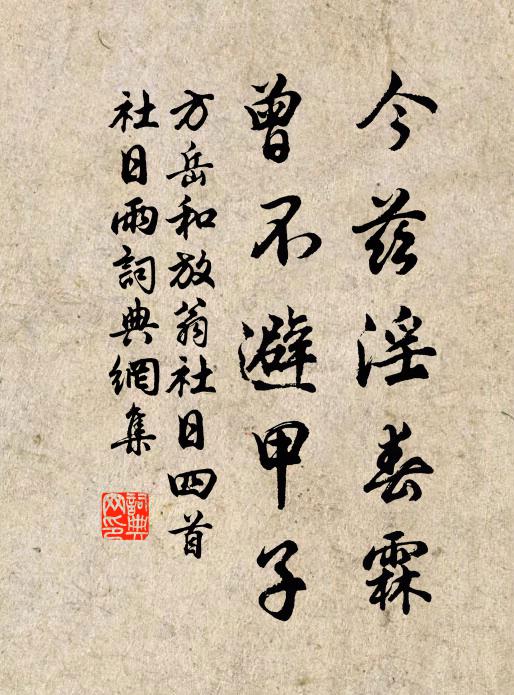 今茲淫春霖
曾不避甲子
方岳和放翁社日四首
社日雨詞典網集
詞典網印